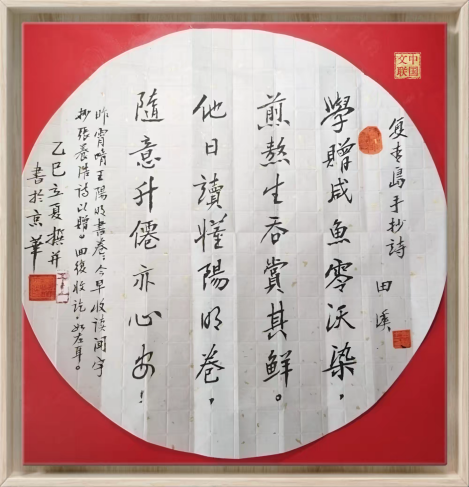 中国
文联
复島手抄詩 田溪
學贈咸魚零沃染，
煎熬生吞賞其鮮。
他日讀懂陽明卷，
隨意升僊亦心安！
昨宵啃王陽明書卷，今早收读闻
抄張養浩詩以贈。田後收讫，如左耳。
乙巳立夏撰并
書於京華